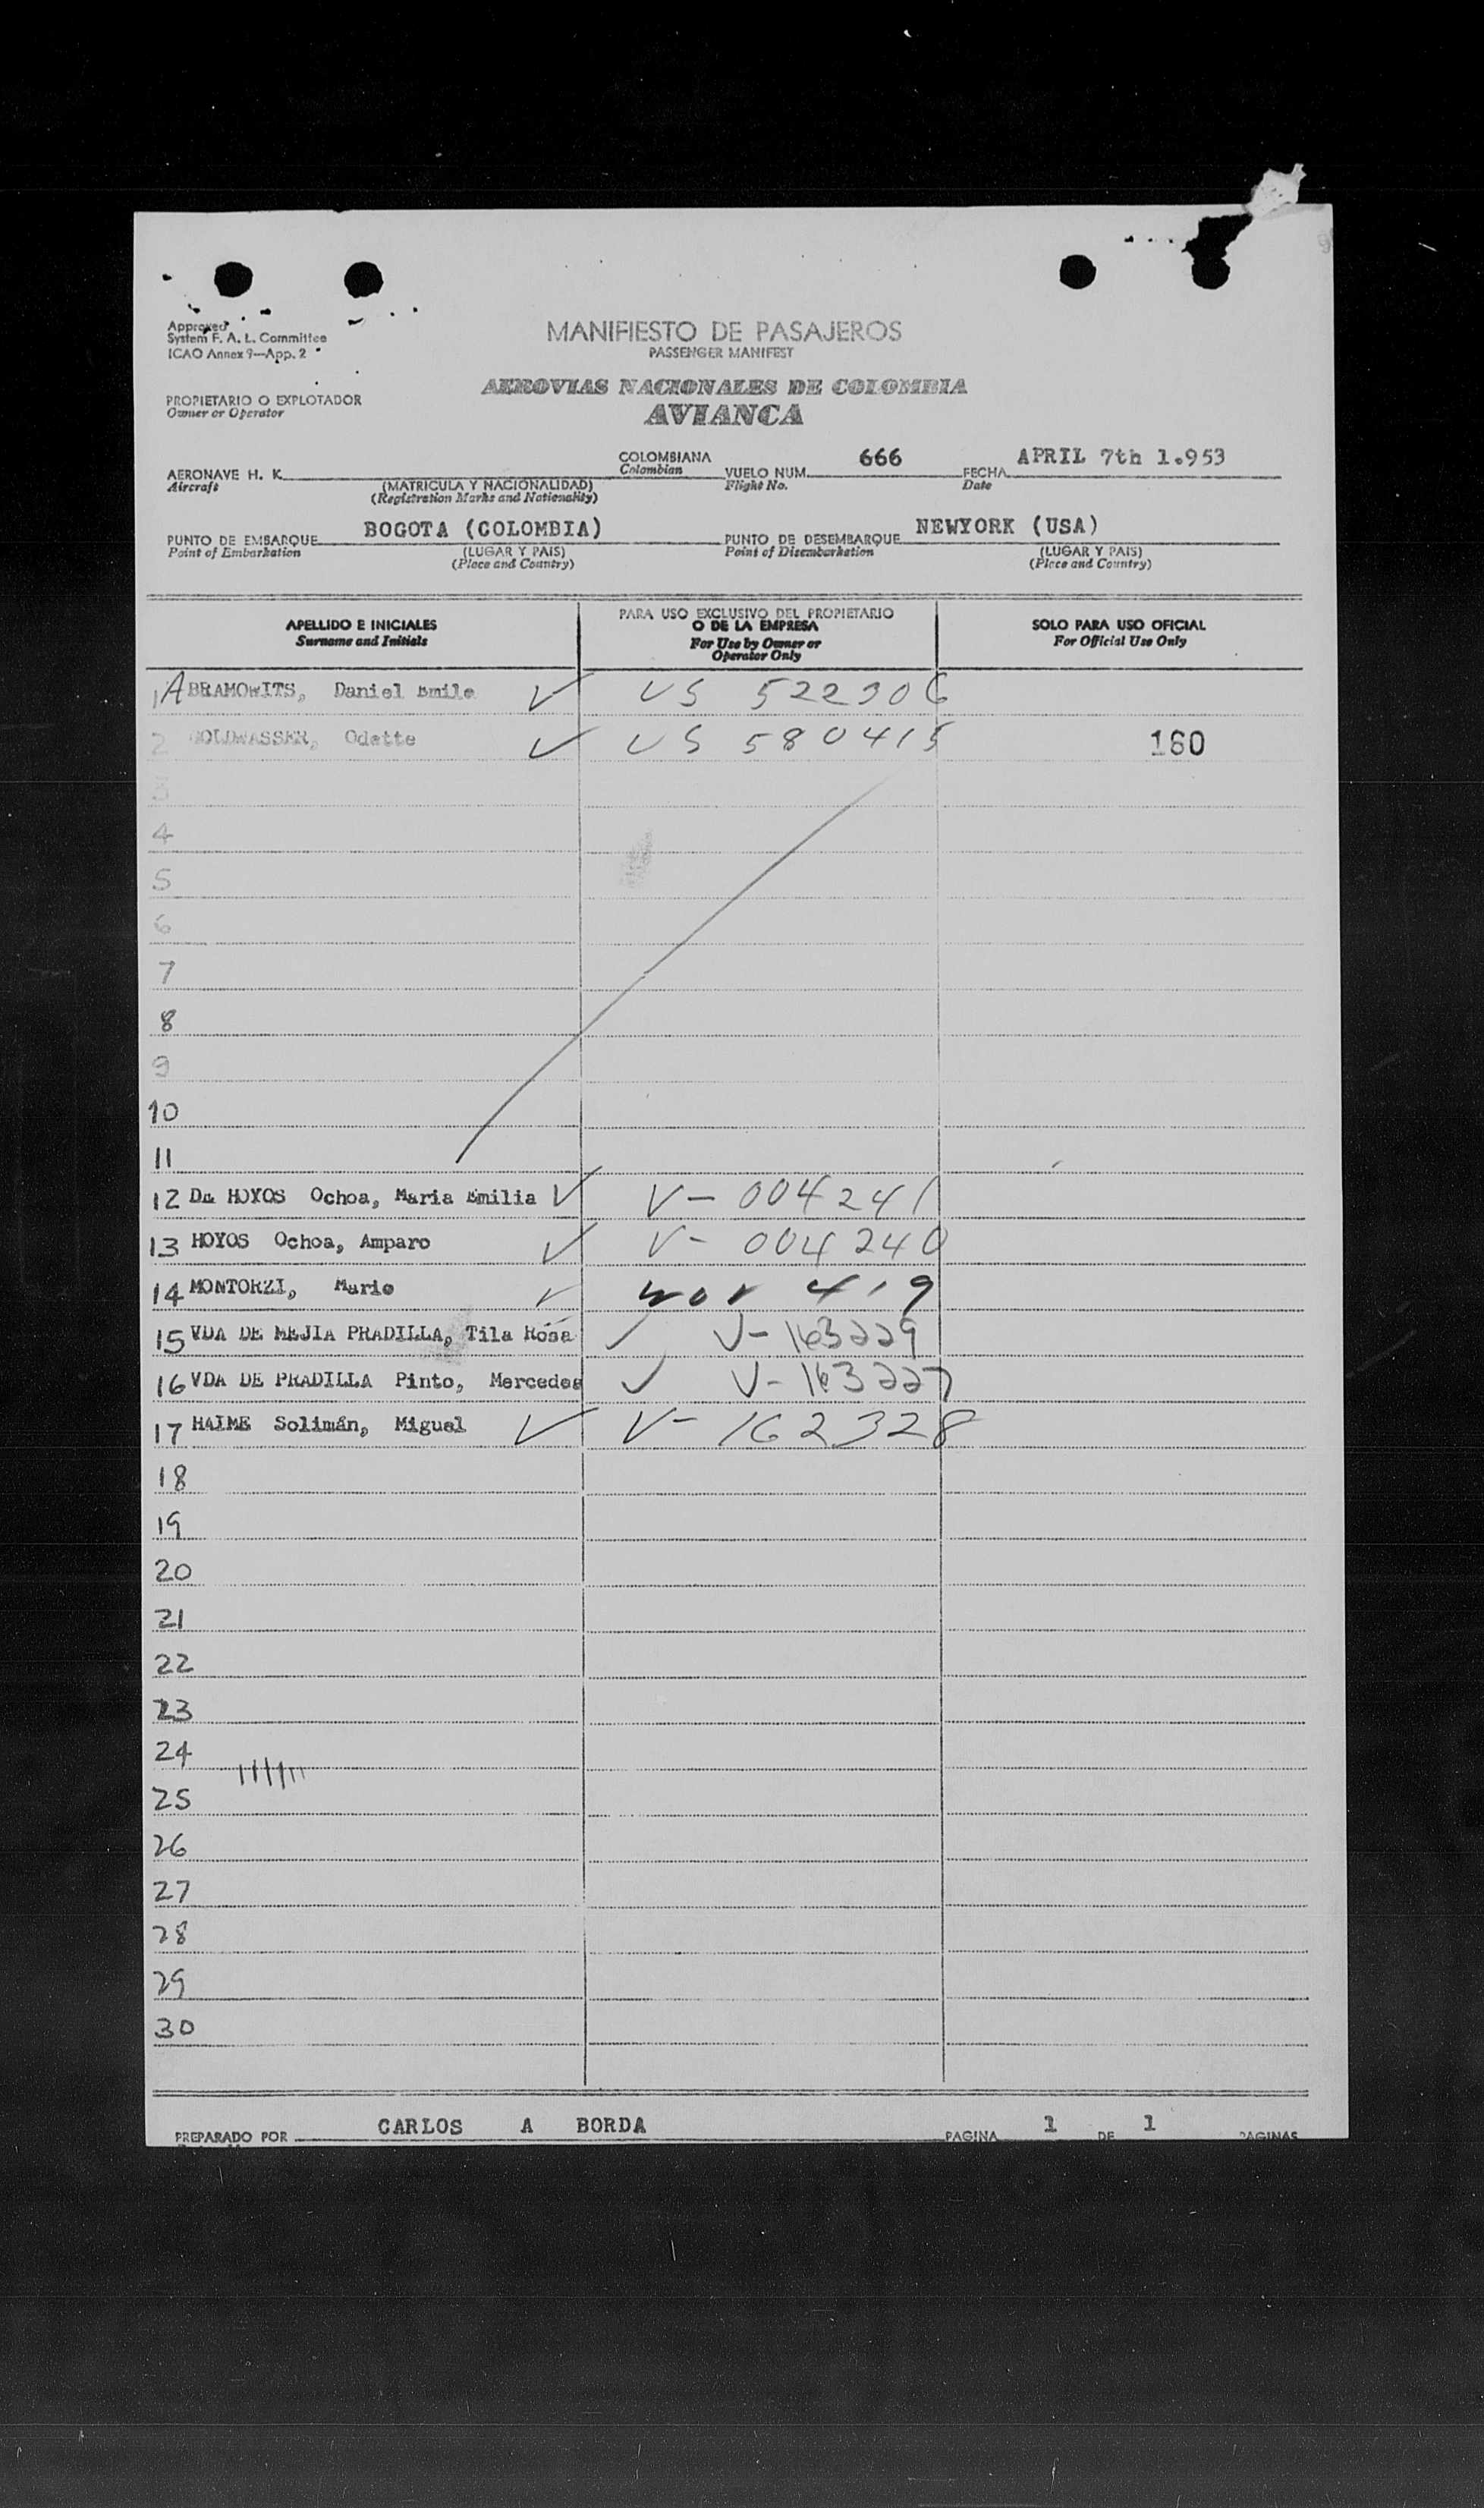 Approved
System F. A. L. Committee
ICAO Annex 9—App. 2
MANIFIESTO DE PASAJEROS
PASSENGER MANIFEST
AEROVIAS NACIONALES DE COLOMBIA
AVIANCA
PROPIETARIO O EXPLOTADOR
Owner or Operator
AERONAVE H. K. COLOMBIANA VUELO NUM. 666 FECHA APRIL 7th 1.953
Aircraft (MATRICULA Y NACIONALIDAD) Colombian Flight No. Date
(Registration Marks and Nationality)
PUNTO DE EMBARQUE BOGOTA (COLOMBIA) PUNTO DE DESEMBARQUE NEWYORK (USA)
Point of Embarkation (LUGAR Y PAIS) Point of Disembarkation (LUGAR Y PAIS)
(Place and Country) (Place and Country)
APELLIDO E INICIALES
Surname and Initials
PARA USO EXCLUSIVO DEL PROPIETARIO
O DE LA EMPRESA
For Use by Owner or
Operator Only
SOLO PARA USO OFICIAL
For Official Use Only
1 ABRAMOWITS, Daniel Emile ✓ US 522306
2 GOLDWASSER, Odette ✓ US 580415 160
3
4
5
6
7
8
9
10
11
12 DE HOYOS Ochoa, Maria Emilia ✓ V-004241
13 HOYOS Ochoa, Amparo ✓ V-004240
14 MONTORZI, Mario ✓ 419
15 VDA DE MEJIA PRADILLA, Tila Rosa ✓ V-163229
16 VDA DE PRADILLA Pinto, Mercedes ✓ V-163227
17 HAIME Solimán, Migual ✓ V-162328
18
19
20
21
22
23
24
25
26
27
28
29
30
PREPARADO POR CARLOS A BORDA PAGINA 1 DE 1 PAGINAS